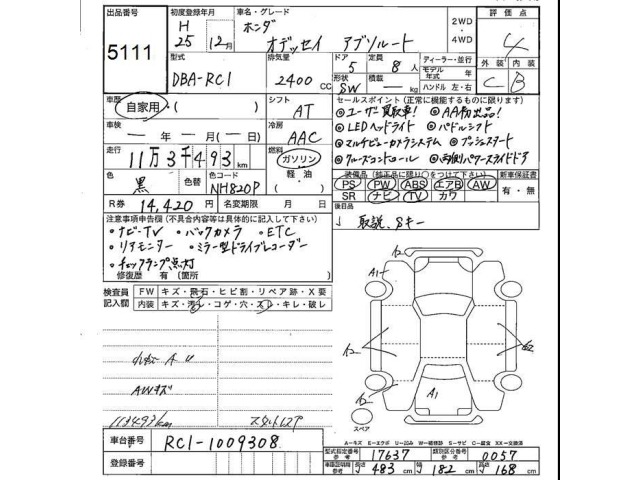 出品番号
5111
初度登録年月
H
25 12月
車名・グレード
ホンダ
オデッセイ アブソルート
2WD
・
4WD
評価点
4
型式
DBA-RC1
排気量
2400 CC
ドア
5
定員
8 人
ディーラー・並行
モデル年式 年
外装 内装
C B
形状
SW
積載
— kg
ハンドル 左・右
車歴
自家用・( )
シフト
AT
セールスポイント(正常に機能するものに限り)
◎ユーザー買取車! ◎AA初出品!
◎LEDヘッドライト ◎パドルシフト
◎マルチビューカメラシステム ◎プッシュスタート
◎クルーズコントロール ◎両側パワースライドドア
車検
— 年 — 月(— 日)
冷房
AAC
走行
11万3千493 km
燃料
ガソリン
軽油
( )
色
黒
色替
色コードNo
NH820P
装備品(純正品に限り○をつけて下さい)
PS PW ABS エアB AW
SR ナビ TV カワ
新車保証書
有・無
R券 14,420
名変期限 月 日
後日品
取説、Sキー
注意事項申告欄(不具合内容等は具体的に記入して下さい)
・ナビ-TV ・バックカメラ ・ETC
・リアモニター ・ミラー型ドライブレコーダー
・チェックランプ点灯
修復歴 有(箇所 )
検査員記入欄
FW キズ・飛石・ヒビ割・リペア跡・X要
内装 キズ・汚れ・コゲ・穴・スレ・キレ・破レ
AWキズ
113493km
A2
A1
A2
A2
A2
A1
スペア
A-キズ E-エクボ U-凹み W-補修跡 S-サビ C-腐食 XX-交換済
車台番号
RC1-1009308
登録番号
型式指定番号 参考
17637
類別区分番号 参考
0057
車検証記載 参考
長さ 483 cm
巾 182 cm
高さ 168 cm